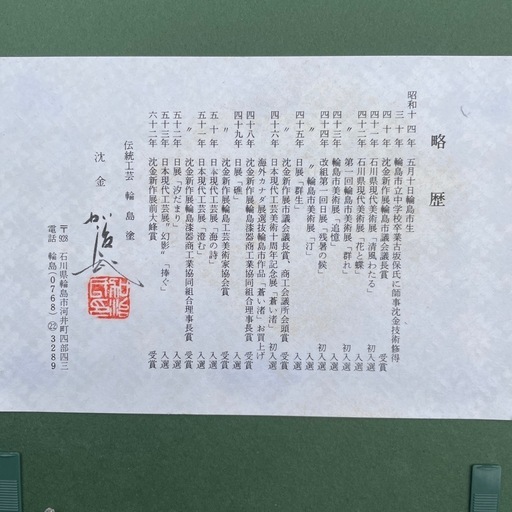 略歴
昭和十四年 五月十日輪島市生
三十年 輪島市立中学校卒業古坂保氏に師事沈金技術修得
四十年 沈金新作展市議会議長賞 受賞
四十一年 石川県現代美術展「清風わたる」 初入選
四十二年 石川県現代美術展「花と蝶」 入選
〃 第一回輪島市美術展「群れ」 初入選
四十三年 輪島市美術展「追憶」 入選
四十四年 改組第一回日展「残暑の候」 初入選
〃 〃輪島市美術展「汀」 入選
四十五年 日展「群生」 入選
〃 沈金新作展市議会議長賞、商工会議所会頭賞 受賞
四十六年 日本現代工芸美術十周年記念展「蒼い渚」 初入選
〃 海外カナダ展選抜輪島市作品「蒼い渚」お買上げ
四十八年 沈金新作展輪島漆器商工業協同組合理事長賞 受賞
四十九年 日展「礁」 入選
〃 沈金新作展輪島工芸美術家協会賞 受賞
五十年 日本現代工芸展「海の詩」 入選
五十一年 日本現代工芸展「澄む」 入選
五十二年 日展「汐だまり」 入選
〃 沈金新作展輪島漆器商工業協同組合理事長賞 受賞
五十三年 日本現代工芸展"幻影"「捧ぐ」 入選
六十二年 沈金新作展前大峰賞 受賞
伝統工芸 輪島塗
沈金
〒928 石川県輪島市河井町四部四三
電話 輪島(0768)㉒3289